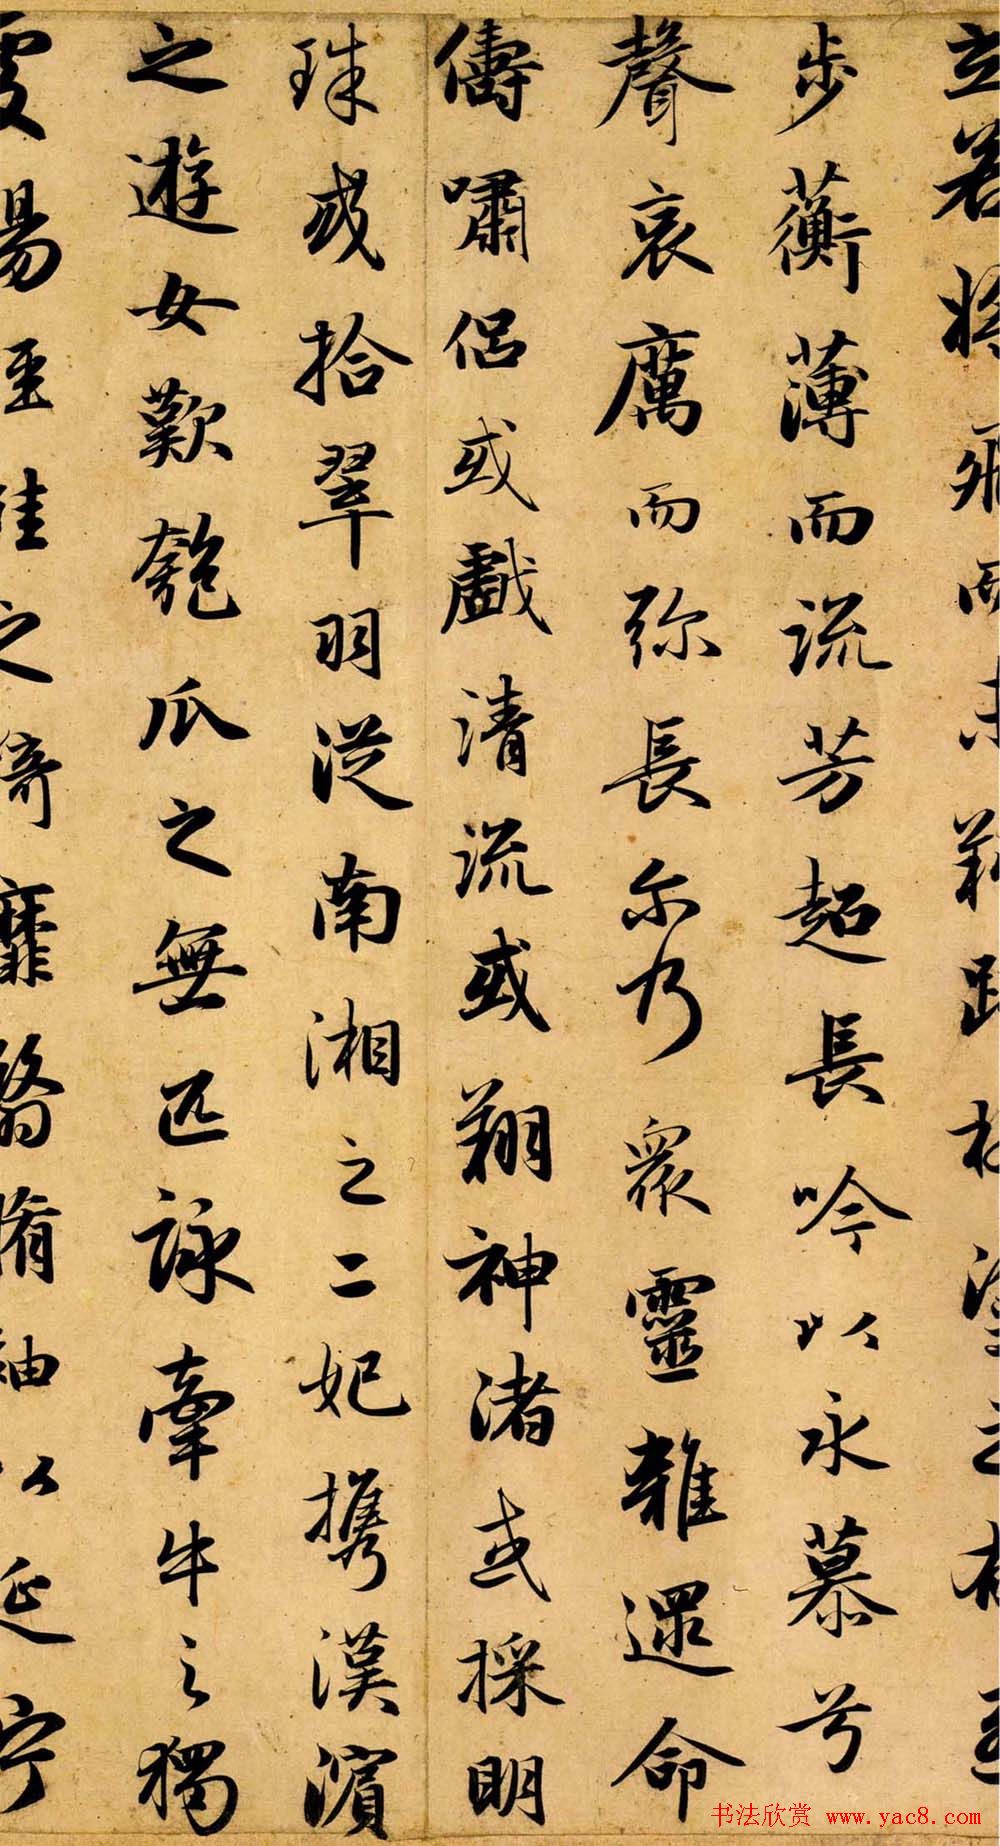 立若將飛而未翔踐椒塗之郁烈
步蘅薄而流芳超長吟以永慕兮
聲哀厲而弥長尔乃眾靈雜遝命
儔嘯侶或戲清流或翔神渚或採明
珠或拾翠羽從南湘之二妃攜漢濱
之遊女歎匏瓜之無匹詠牽牛之獨
處揚輕袿之綺靡翳脩袖以延佇
书法欣赏 www.yac8.com